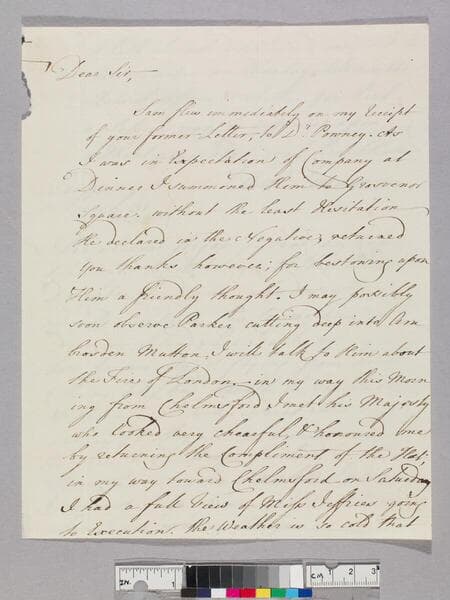 Dear Sir,
Sam flew immediately on my receipt
of your former Letter, to Dr. Powney. As
I was in Expectation of Company at
Dinner I summoned Him to Grosvenor
Square. without the least Hesitation
He declared in the Negative; returned
you thanks however, for bestowing upon
Him a friendly thought. I may possibly
soon observe Parker cutting deep into Am
brosden Mutton, I will talk to Him about
the Fire of London. in my way this Morn
ing from Chelmsford I met his Majesty
who looked very chearful, & honoured me
by returning the Compliment of the Hat;
in my way toward Chelmsford on Saturday
I had a full View of Miss Jeffries going
to Execution. the Weather is so cold that
IN. 1
CM 1 2 3